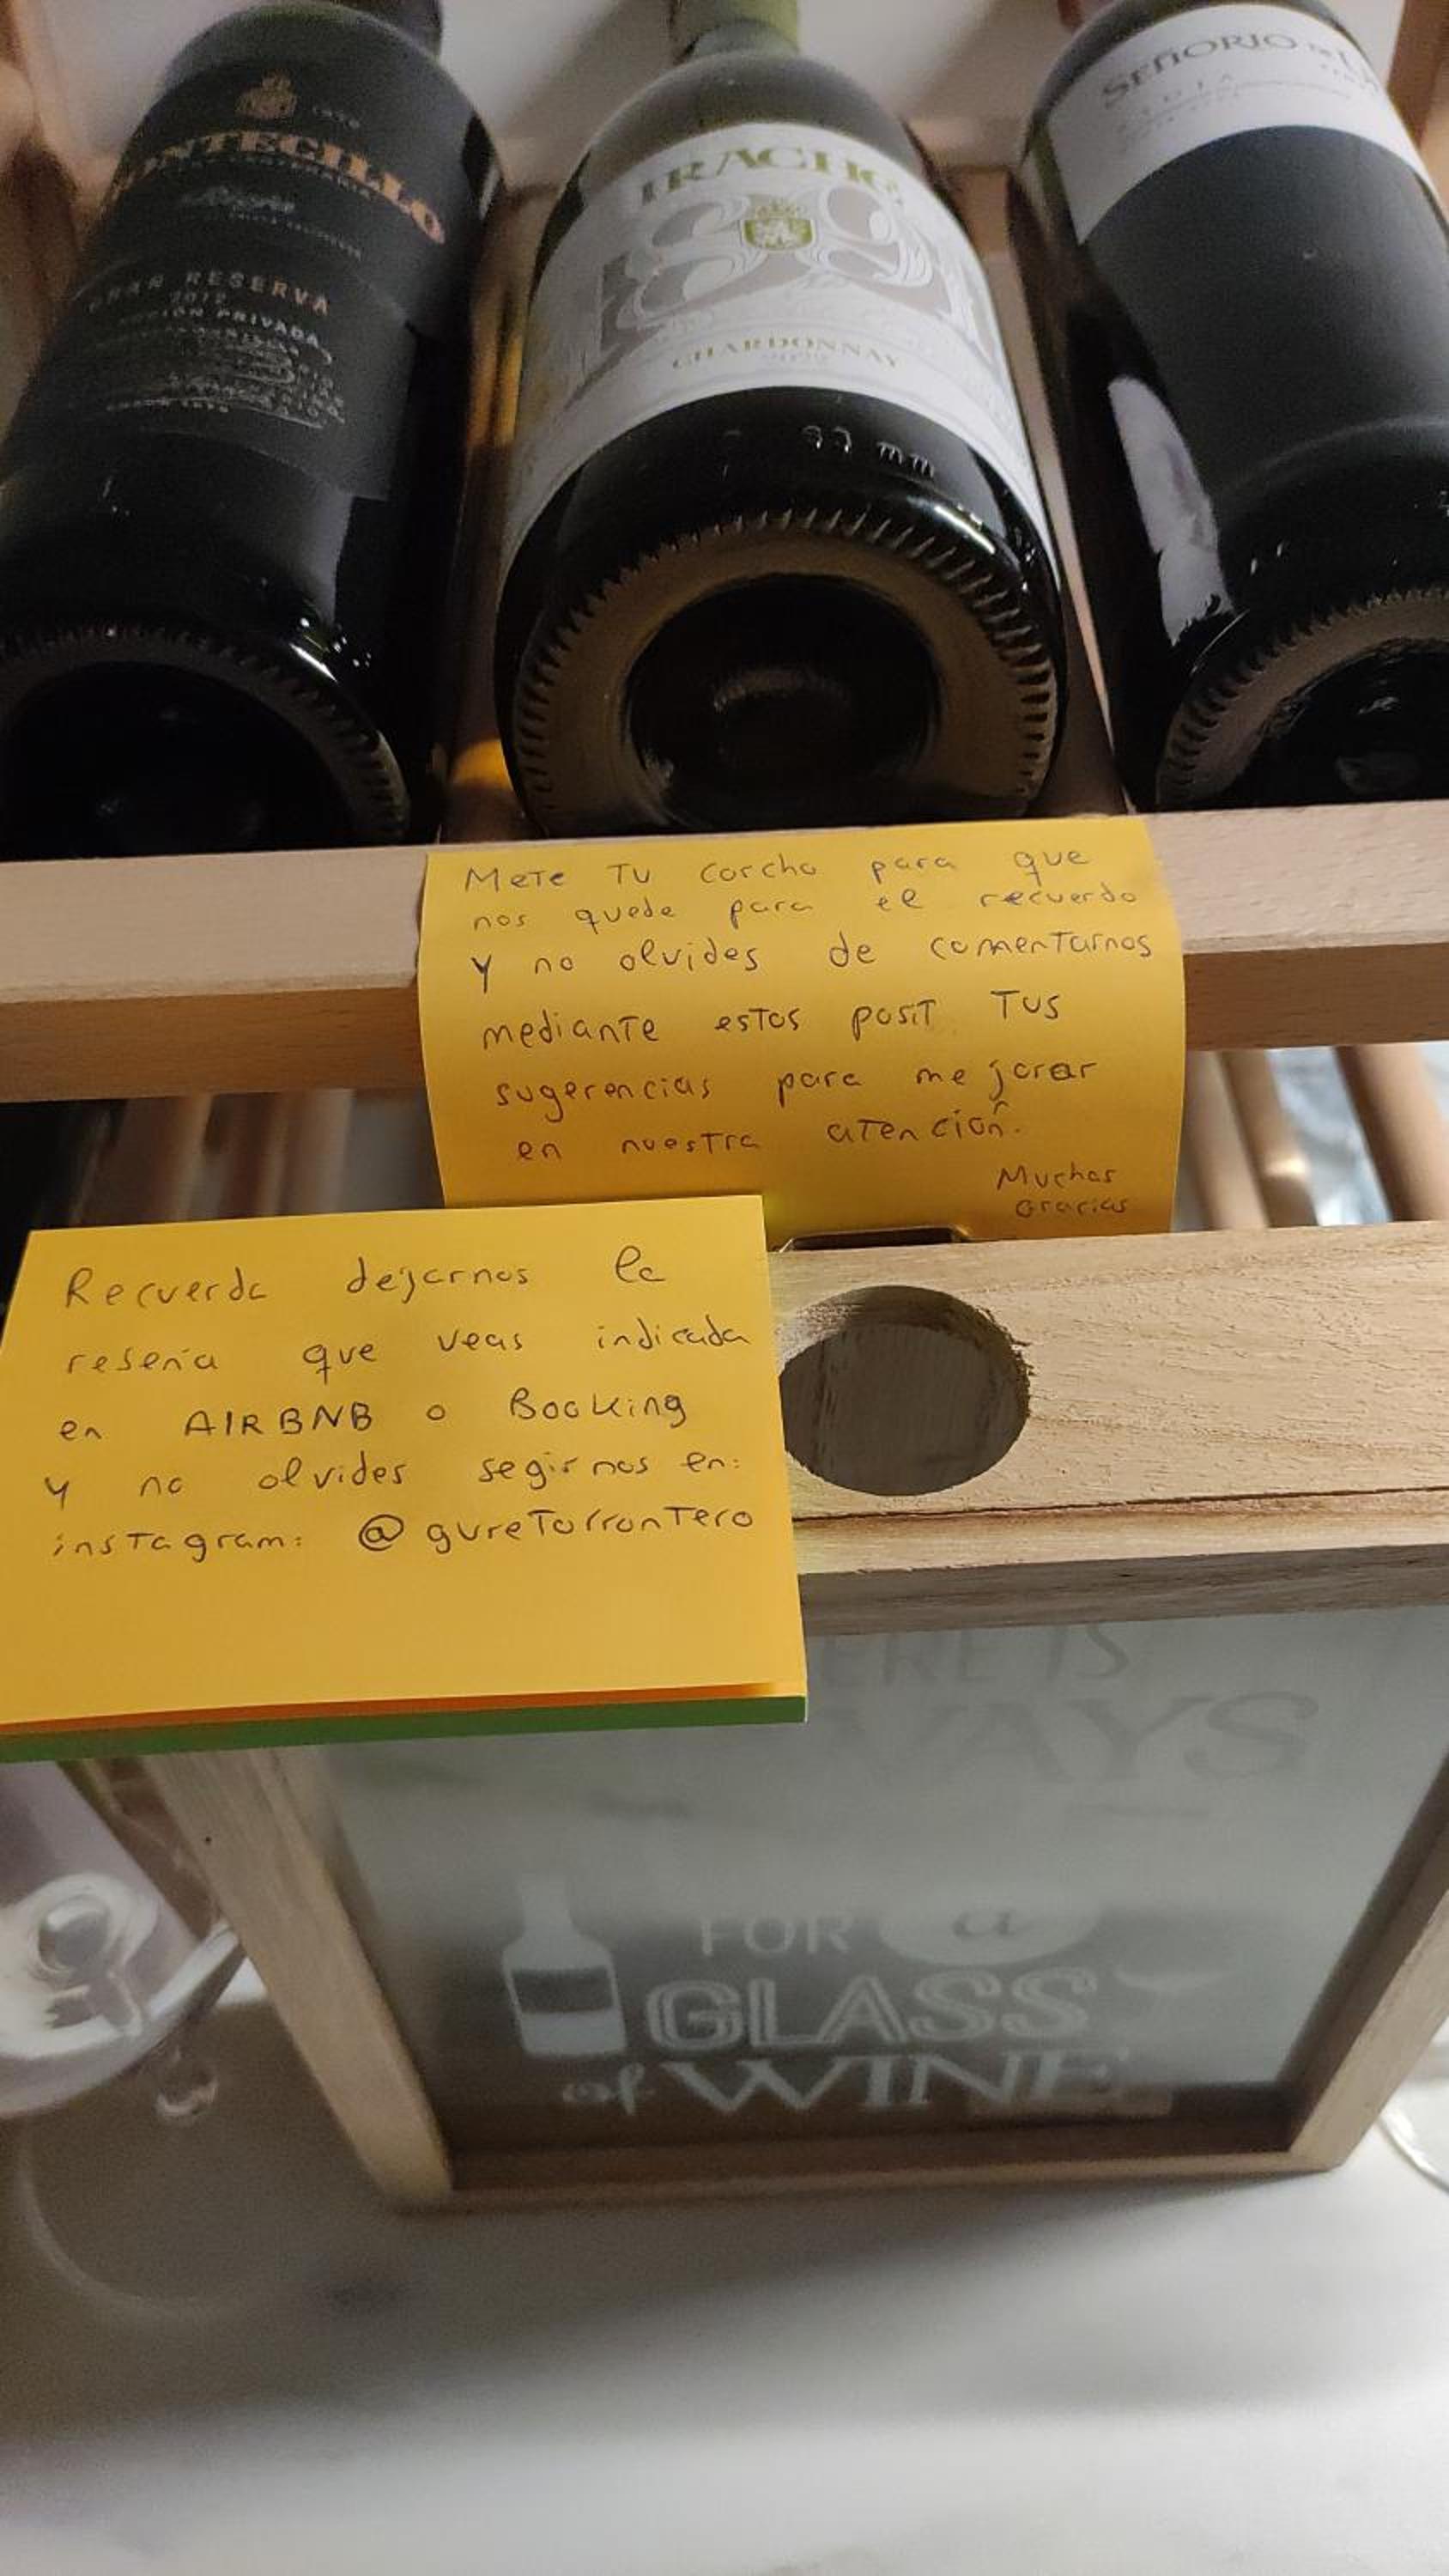 MONTECILLO
GRAN RESERVA
IRACHE
CHARDONNAY
SEÑORIO DE
33 mm
Mete Tu corcho para que
nos quede para el recuerdo
Y no olvides de comentarnos
mediante estos posit Tus
sugerencias para mejorar
en nuestra atención.
Muchas
Gracias
Recuerda dejarnos la
reseña que veas indicada
en AIRBNB o Booking
Y no olvides segirnos en:
instagram: @gureTorronTero
ERE IS
WAYS
FOR a
GLASS
of WINE